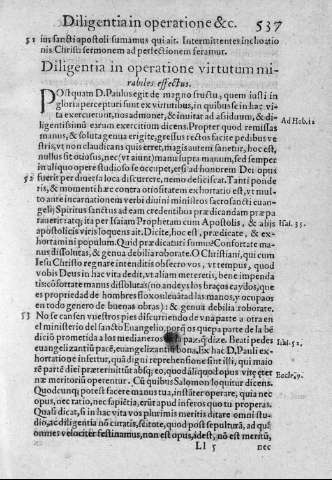 Diligentia in operatione &c. 537
51 ius sancti apostoli sumamus qui ait. Intermittentes inchoatio
nis Christi sermonem ad perfectionem feramur.
Diligentia in operatione virtutum mi-
rabiles effectus.
POstquam D. Paulus egit de magno fructu, quem iusti in
gloria percepturi sunt ex virtutibus, in quibus se in hac vi-
ta exercuerunt, nos admonet, & inuitat ad assiduum, & di- Ad Heb. 12
ligentissimũ earum exercitium dicens. Propter quod remissas
manus, & soluta genua erigite, gressus rectos facite pedibus ve
stris, vt non claudicans quis erret, magis autem sanetur, hoc est,
nullus sit otiosus, nec (vt aiunt) manu supra manum, sed semper
in aliquo opere studioso se occupet, etsi ad honorem Dei opus
52 fuerit per diuersa loca discurrere, nemo deficiscat. Tanti ponde
ris, & momenti hæc contra otiositatem exhortatio est, vt mul
to ante incarnationem verbi diuini ministros sacrosancti euan-
gelij Spiritus sanctus ad eam credentibus prædicandam præpa
rauerit: atq; ita per Isaiam Prophetam cum Apostolis, & alijs Isai. 35.
apostolicis viris loquens ait. Dicite, hoc est, prædicate, & ex-
hortamini populum. Quid prædicaturi sumus? Confortate ma-
nus dissolutas, & genua debilia roborate. O Christiani, qui cum
Iesu Christo regnare intenditis obsecro vos, vt tempus, quod
vobis Deus in hac vita dedit, vt aliam mereretis, bene impenda
tis: confortate manus dissolutas (no andeys los braços caydos, que
es propriedad de hombres floxos: leuãtad las manos, y ocupaos
en todo genero de buenas obras): & genua debilia roborate.
53 No se cansen vuestros pies discurriendo de vna parte a otra en
el ministerio del sancto Euangelio, porq̃ os quepa parte de la bẽ
dició prometida a los medianeros paz, q̃ dize. Beati pedes Isai. 52.
euangelizantiũ pacẽ, euangelizantiũ bona. Ex hac D. Pauli ex-
hortatione infertur, quã digni reprehensione sint illi, qui maio
rẽ partẽ diei prætermittũt absq; eo, quòd aliq̃d opus vitę eter
næ meritoriũ operentur. Cũ quibus Salomon loquitur dicens. Eccle. 9.
Quodcunq; potest facere manus tua, instãter operare, quia nec
opus, nec ratio, nec sapiẽtia, erũt apud inferos quo tu properas.
Quasi dicat, si in hac vita vos plurimis meritis ditare omni stu-
dio, ac diligentia nõ curatis, scitote, quòd post sepulturã, ad quã
omnes velociter festinamus, non est opus, idest, nõ est meritũ,
Ll 5 nec